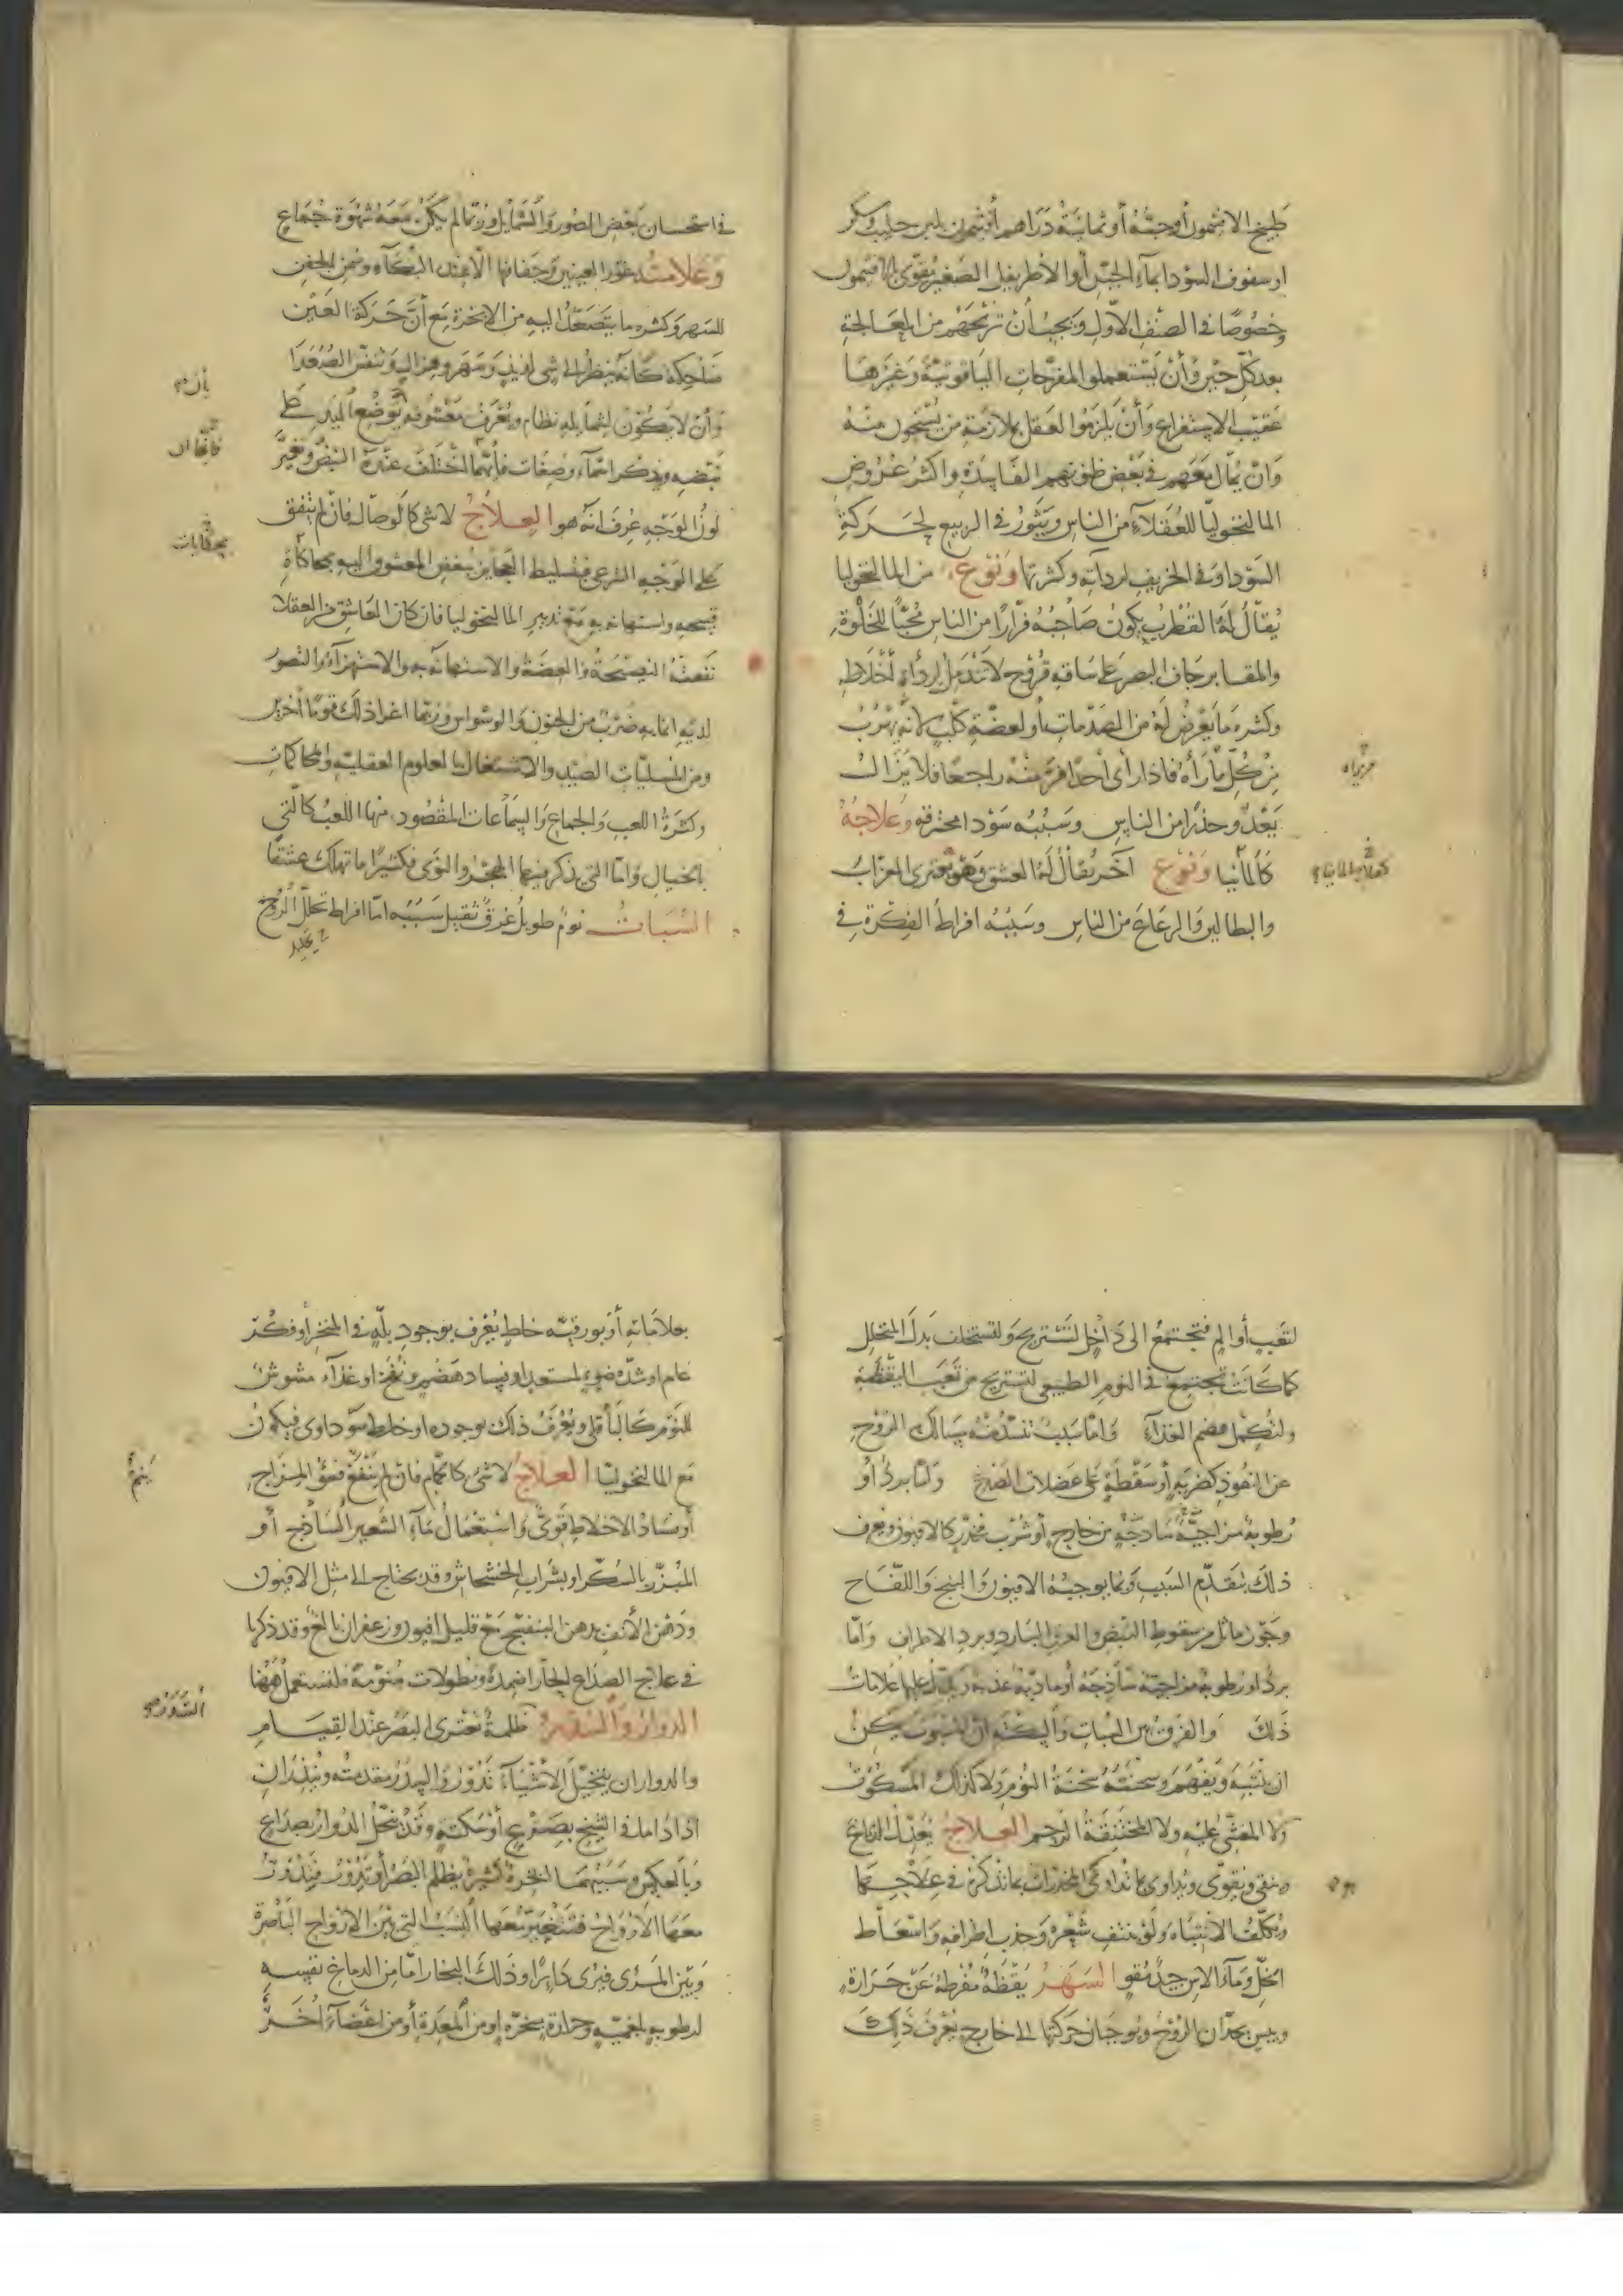 طبيخ الافتيمون أو حبّه أو ثمانية دراهم أفتيمون بلبن حليب وسكر
او سفوف السودا بماء الجبن أو الأطريفل الصغير مقوّى بالافتيمون
وخصوصًا في الصنف الأول ويجب أن تريحهم من المعالجة
بعد كل حين وأن يستعملوا المفرحات الياقوتية وغيرها
عقيب الاستفراغ وأن يلزموا العقل بملازمة من يستحيون منه
وان يمال معهم في بعض ظنونهم الفاسدة واكثر عروض
المالنخوليا للعقلاء من الناس ويثور في الربيع لحركة
السودا وفي الخريف لرداته وكثرتها ونوع من المالنخوليا
يقال له القطرب يكون صاحبه فرّارًا من الناس محبًّا للخلوة
والمقابر جاف البصر على ساقه قروح لا تندمل لرداة أخلاطه
وكثره ما يعرض له من الصدمات أو لعضة كلب لانه يهرب
من كل مارأه فاذا رأى أحدا فر منه راجعا فلا يزال
يعدو حذرا من الناس وسببه سودا محترقه وعلاجه
كالمانيا ونوع آخر يقال له العشق وهو يعترى العزاب
والبطالين والرعاع من الناس وسببه افراط الفكرة في
في استحسان بعض الصور والشمايل وربما لم يكن معه شهوة جماع
وعلامته غور العينين وجفافها الا عند البكاء وسمن الجفن
للسهر وكثره ما يتصعد اليه من الابخرة مع أن حركة العين
ضاحكة كأنه ينظر الى شي لذيذ وسهر وهزال وتنفس الصعدا
وأن لا يكون لشمايله نظام ويعرف معشوقه بوضع اليد على
نبضه ويذكر اسماء وصفات فأيها اختلف عنده النبض وتغير
لون الوجه عرف انه هو العلاج لا شي كالوصال فان لم يتفق
على الوجه الشرعي فتسليط العجايز ببغض المعشوق اليه بمحاكاة
قبيحه واستهانه به مع تدبير المالنخوليا فان كان العاشق من العقلا
نفعته النصيحة والعضة والاستهانة به والاستهزاء والتصور
لديه انما به ضرب من الجنون والوسواس وربما اغرا ذلك قوما آخرين
ومن المسليات الصيد والاشتغال بالعلوم العقلية والمحاكمات
وكثرة اللعب والجماع والسماعات المقصود منها اللعب كالتي
بالخيال واما التي يذكر فيها الهجر والنوى فكثيرا ما تهلك عشقا
السبات نوم طويل غرق ثقيل سببه اما افراط تحلل الروح
لتعب أو ألم فتجتمع الى داخل لتستريح ولتستخلف بدل المتحلل
كما كانت تجتمع في النوم الطبيعي لتستريح من تعب اليقظة
ولتكمل هضم الغذاء واما سبب تنسد منه مسالك الروح
عن النفوذ كضربة أو سقطة على عضلات الصدغ واما برد أو
رطوبة مزاجية ساذجة من خارج أو شرب مخدر كالافيون ويعرف
ذلك بتقدم السبب وبما يوجبه الافيون والبنج واللفاح
وجوز ماثل من سقوط النبض والعرق البارد وبرد الاطراف واما
برد او رطوبة مزاجية ساذجة أو مادية عذبة ويدل عليها علامات
ذلك والفرق بين السبات والسكته ان المسبوت يمكن
ان ينتبه ويفهم وسحنته سحنة النوم ولا كذلك المسكوت
ولا المغشي عليه ولا المختنقة الرحم العلاج يعدل الدماغ
وينقى ويقوى ويداوى بما تداوى المخدرات بما نذكره في علاجها
ويكلف الانتباه ولو بنتف شعره وجذب اطرافه واسعاط
الخل وماء الاس جيد مقو السهر يقظة مفرطة عن حرارة
ويبس يحدان الروح ويوجبان حركتها الى خارج يعرف ذلك
بعلاماته أو بورقية خلط يعرف بوجود بلة في المنخر أو فكر
عام او شدة ضوء لمستعد او فساد هضم ونفخ او غذاء مشوش
للنوم كالباقلى ويعرف ذلك بوجوده او خلط سوداوى فيكون
مع المالنخوليا العلاج لا شي كالحمام فان لم ينفع فسوء المزاج
أو فساد الاخلاط قوى واستعمال ماء الشعير الساذج أو
المبزر بالسكر او بشراب الخشخاش وقد يحتاج الى مثل الافيون
ودهن الأنف بدهن البنفسج مع قليل افيون وزعفران بالغ وقد ذكرنا
في علاج الصداع الحار اضمدة ونطولات منومة فلتستعمل ههنا
الدوار والسدر ظلمة تعترى البصر عند القيام
والدوار ان يتخيل الاشياء تدور والسدر مقدمته وينذران
اذا داما في الشيخ بصرع أو سكته وقد ينحل الدوار بصداع
وبالعكس وسببهما ابخرة كثيرة يظلم البصر أو تدور فتدور
معها الارواح فتتغير معها النسب التي بين الارواح الباصرة
وبين المرئ فيرى دايرا وذلك البخار اما من الدماغ نفسه
لرطوبه بلغميه وحرارة مبخرة او من المعدة أو من اعضاء أخر